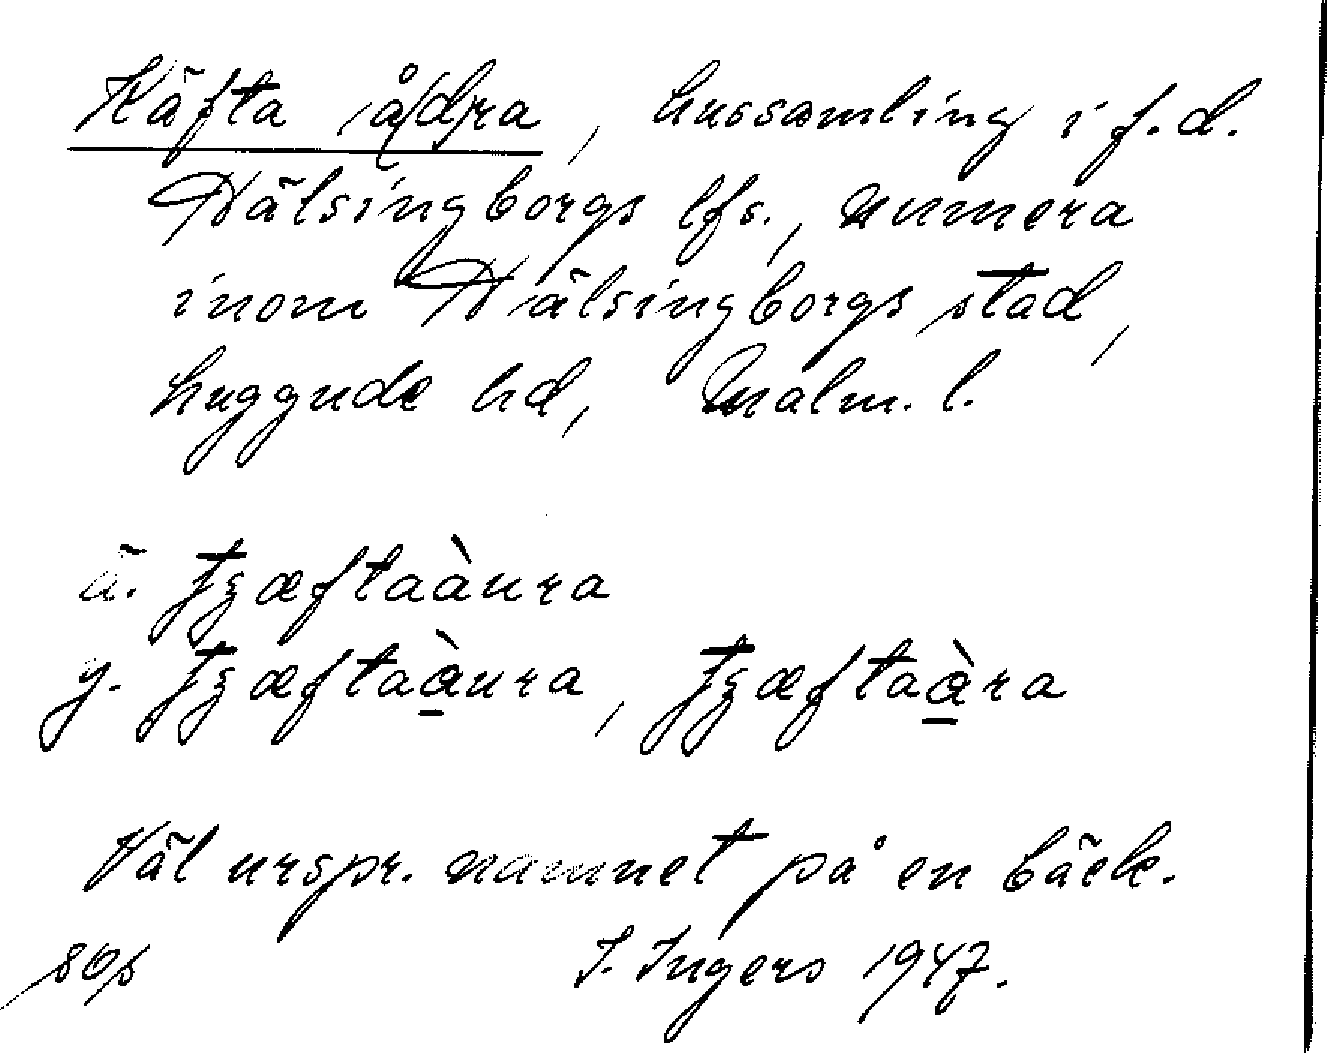 Käfta å(d)ra, hussamling i f.d.
Hälsingborgs lfs., numera
inom Hälsingborgs stad,
Luggude hd, Malm. l.
ä. tʒæftaàura
y. tʒæftaà̱ura, tʒæftaà̱ra
Väl urspr. namnet på en bäck.
I. Ingers 1947.